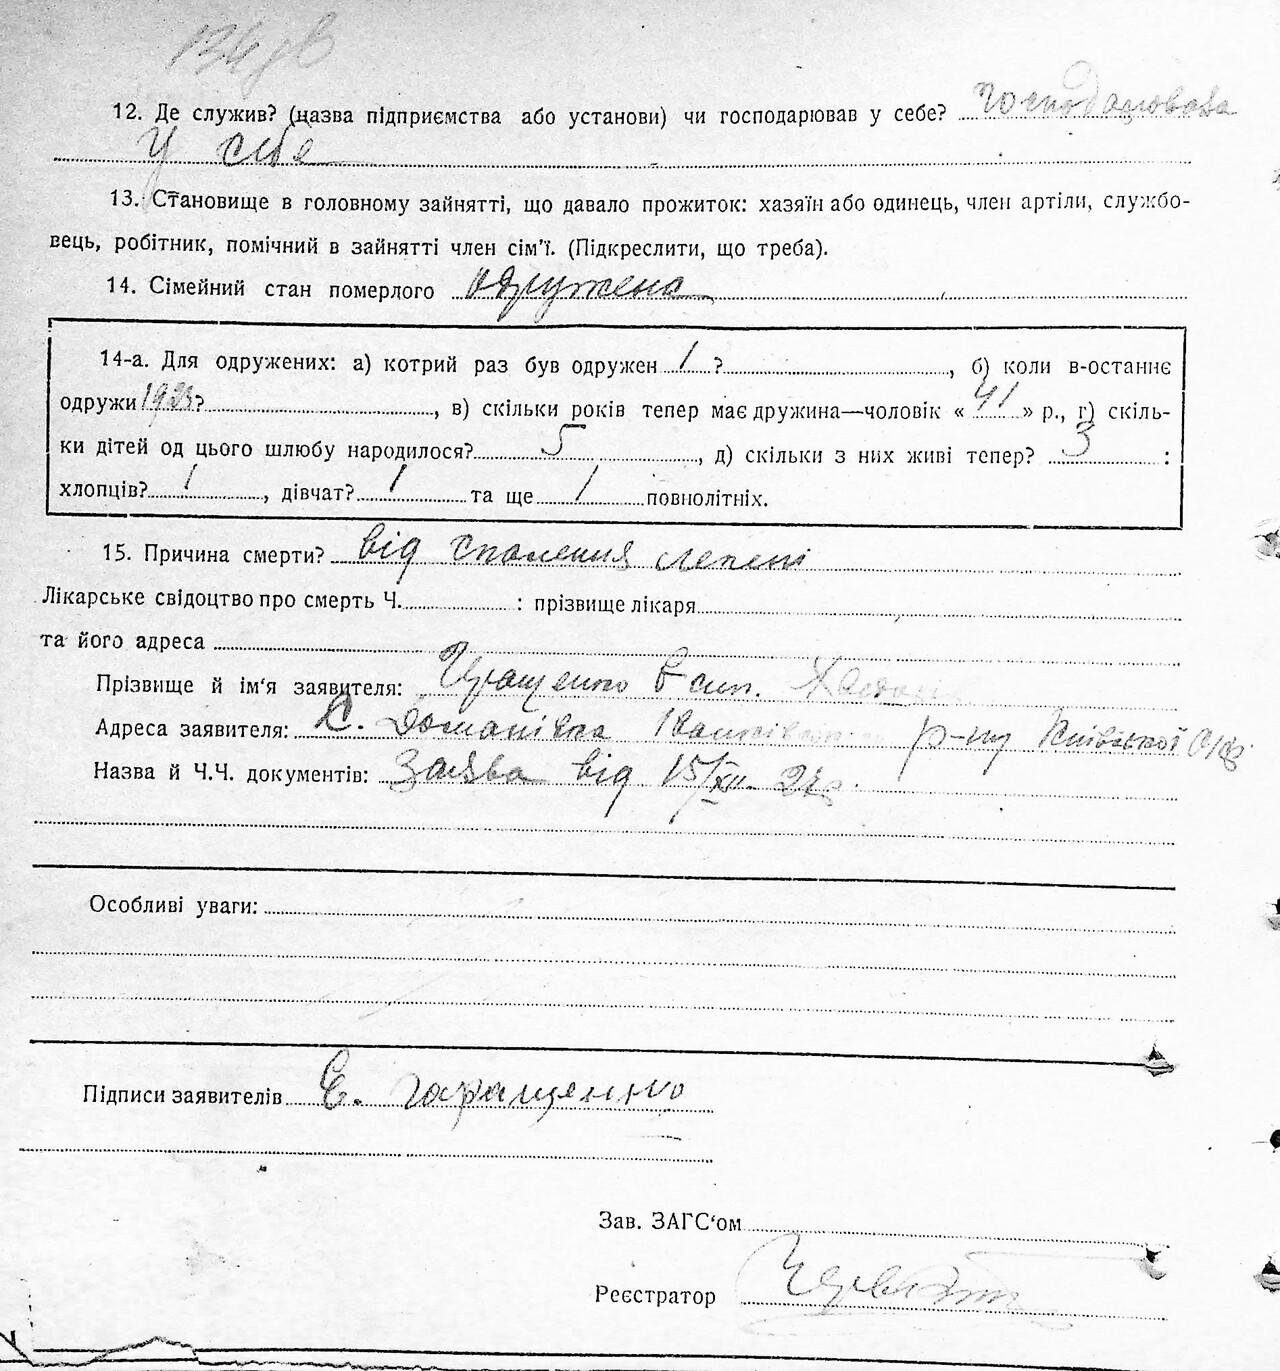 12. Де служив? (назва підприємства або установи) чи господарював у себе? господарювала
У себе
13. Становище в головному зайнятті, що давало прожиток: хазяїн або одинець, член артіли, службо-
вець, робітник, помічний в зайнятті член сім'ї. (Підкреслити, що треба).
14. Сімейний стан померлого одружена
14-а. Для одружених: а) котрий раз був одружен 1 ?, б) коли в-останнє
одружи 1923 ?, в) скільки років тепер має дружина—чоловік « 41 » р., г) скіль-
ки дітей од цього шлюбу народилося? 5, д) скільки з них живі тепер? 3 :
хлопців? 1, дівчат? 1 та ще 1 повнолітніх.
15. Причина смерти? від спалення легені
Лікарське свідоцтво про смерть Ч. : прізвище лікаря
та його адреса
Прізвище й ім'я заявителя:
Адреса заявителя: С. Доманівка р-ну Київської
Назва й Ч.Ч. документів: Заява від 15/XII 27р.
Особливі уваги:
Підписи заявителів Є. Гаращенко
Зав. ЗАГС'ом
Реєстратор